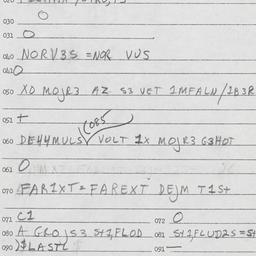 030 O
031 O
040 NORV3S = NOR VVS
041 O
050 XO MOJR3 AZ S3 VET 1MFALN/1B3R
051 t
(OR5
060 DE44MULS VOLT 1X MOJR3 G3HOT
061 O
070 FAR1XT = FAREXT DEJM T1St
071 C1 072 O
080 A GRO JS3 St1,FLOD 081 St1,FLUD2S = St
090 )$LASTC 091 —